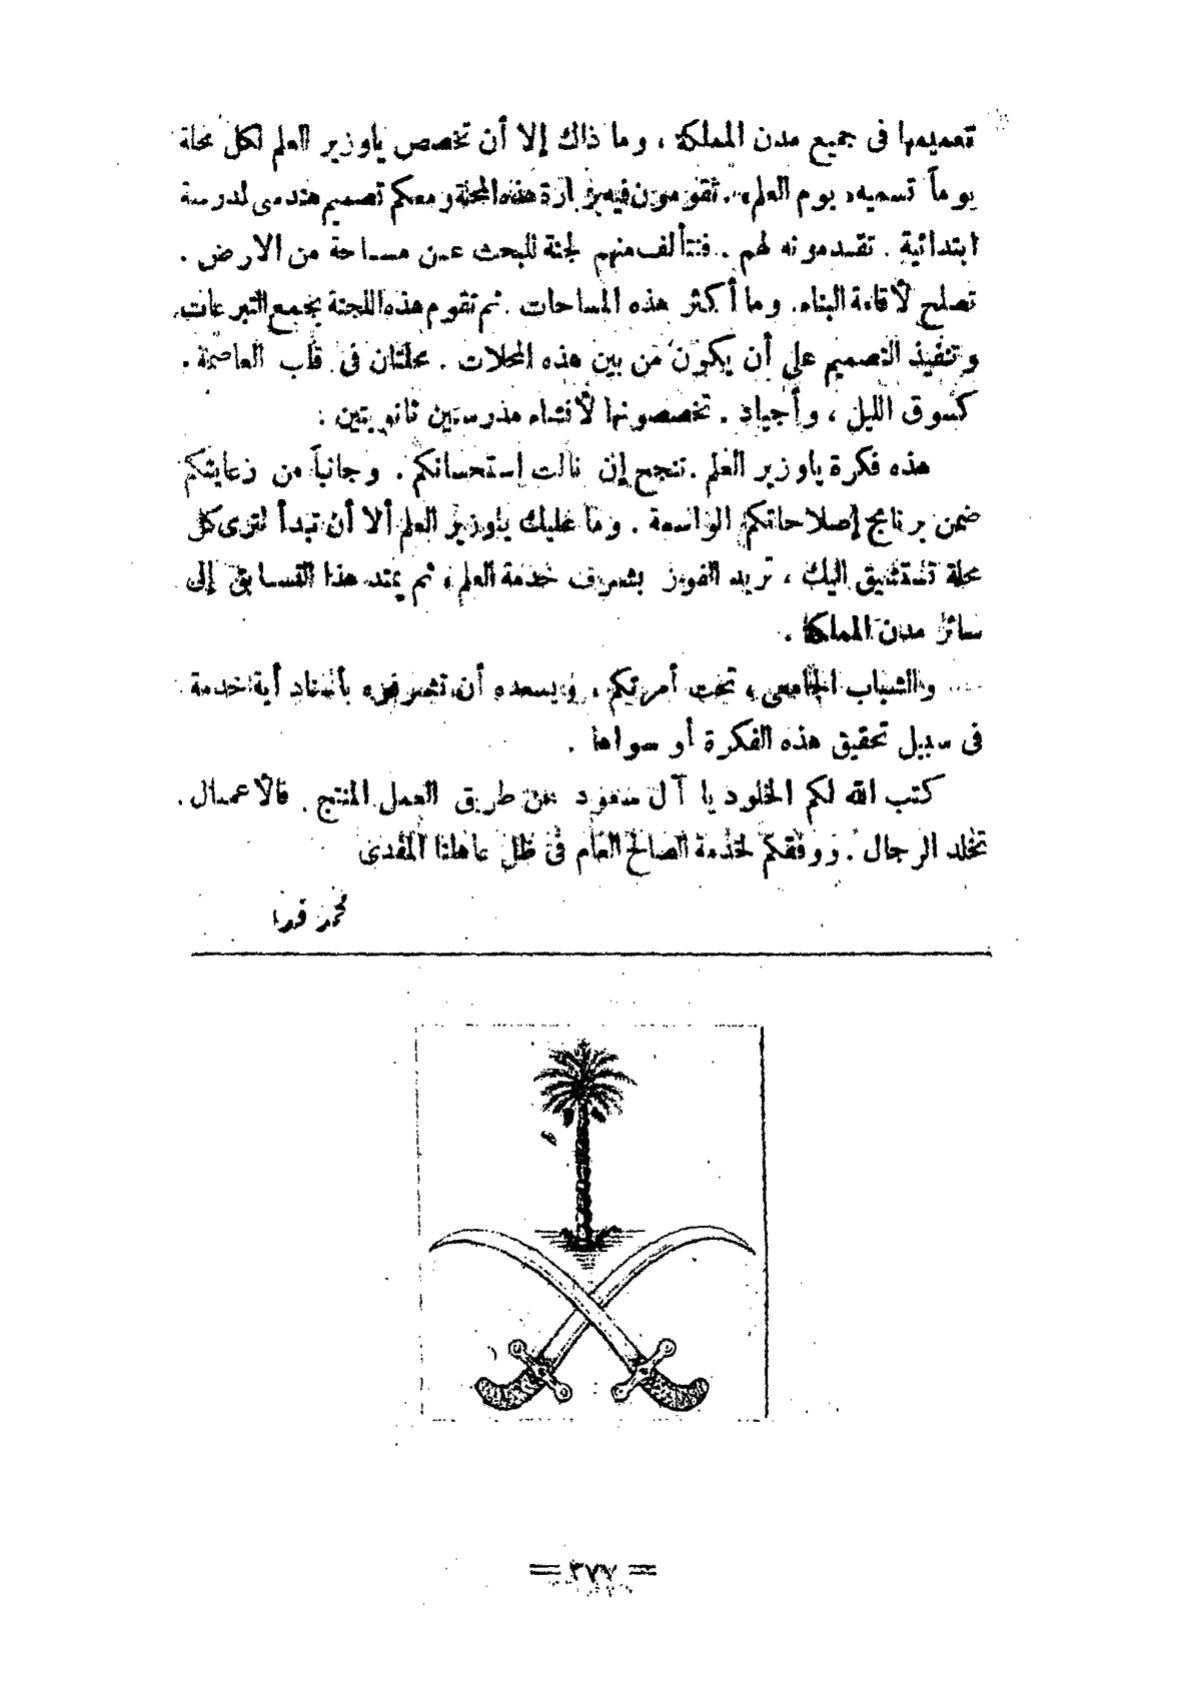 تعميمها فى جميع مدن المملكة ، وما ذاك إلا أن تخصص ياوزير العلم لكل محلة
يوماً تسميه « يوم العلم » . تقومون فيه بزيارة هذه المحلة ومعكم تصميم هندسى لمدرسة
ابتدائية . تقدمونه لهم . فتتألف منهم لجنة للبحث عن مساحة من الارض .
تصلح لأقامة البناء . وما أكثر هذه المساحات . ثم تقوم هذه اللجنة بجمع التبرعات
وتنفيذ التصميم على أن يكون من بين هذه المحلات . محلتان فى قلب العاصمة .
كسوق الليل ، وأجياد . تخصصونها لأنشاء مدرستين ثانويتين .
هذه فكرة ياوزير العلم . تنجح إن نالت إستحسانكم . وجانباً من رعايتكم
ضمن برنامج إصلاحاتكم الواسعة . وما عليك ياوزير العلم ألا أن تبدأ لترى كل
محلة تستبق اليك ، تريد الفوز بشرف خدمة العلم ، ثم يمتد هذا التسابق إلى
سائر مدن المملكة .
والشباب الجامعى ، تحت أمرتكم ، ويسعده أن تشرفوه بأسناد أية خدمة
فى سبيل تحقيق هذه الفكرة أو سواها .
كتب الله لكم الخلود يا آل سعود عن طريق العمل المنتج . فالاعمال .
تخلد الرجال . ووفقكم لخدمة الصالح العام فى ظل عاهلنا المفدى
محمد
= ٣٧٧ =